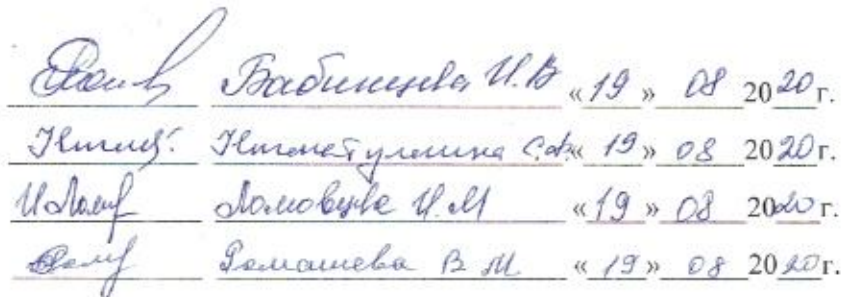 Бабинцева И.В «19» 08 2020 г.
Нигматуллина С.А. «19» 08 2020 г.
Ломовцева И.М «19» 08 2020 г.
Ромашева В М «19» 08 2020 г.